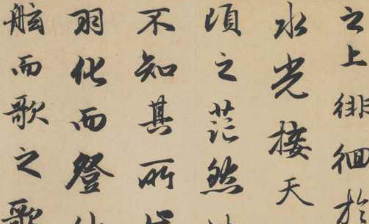 之上徘徊於
水光接天
頃之茫然
不知其所
羽化而登
舷而歌之歌